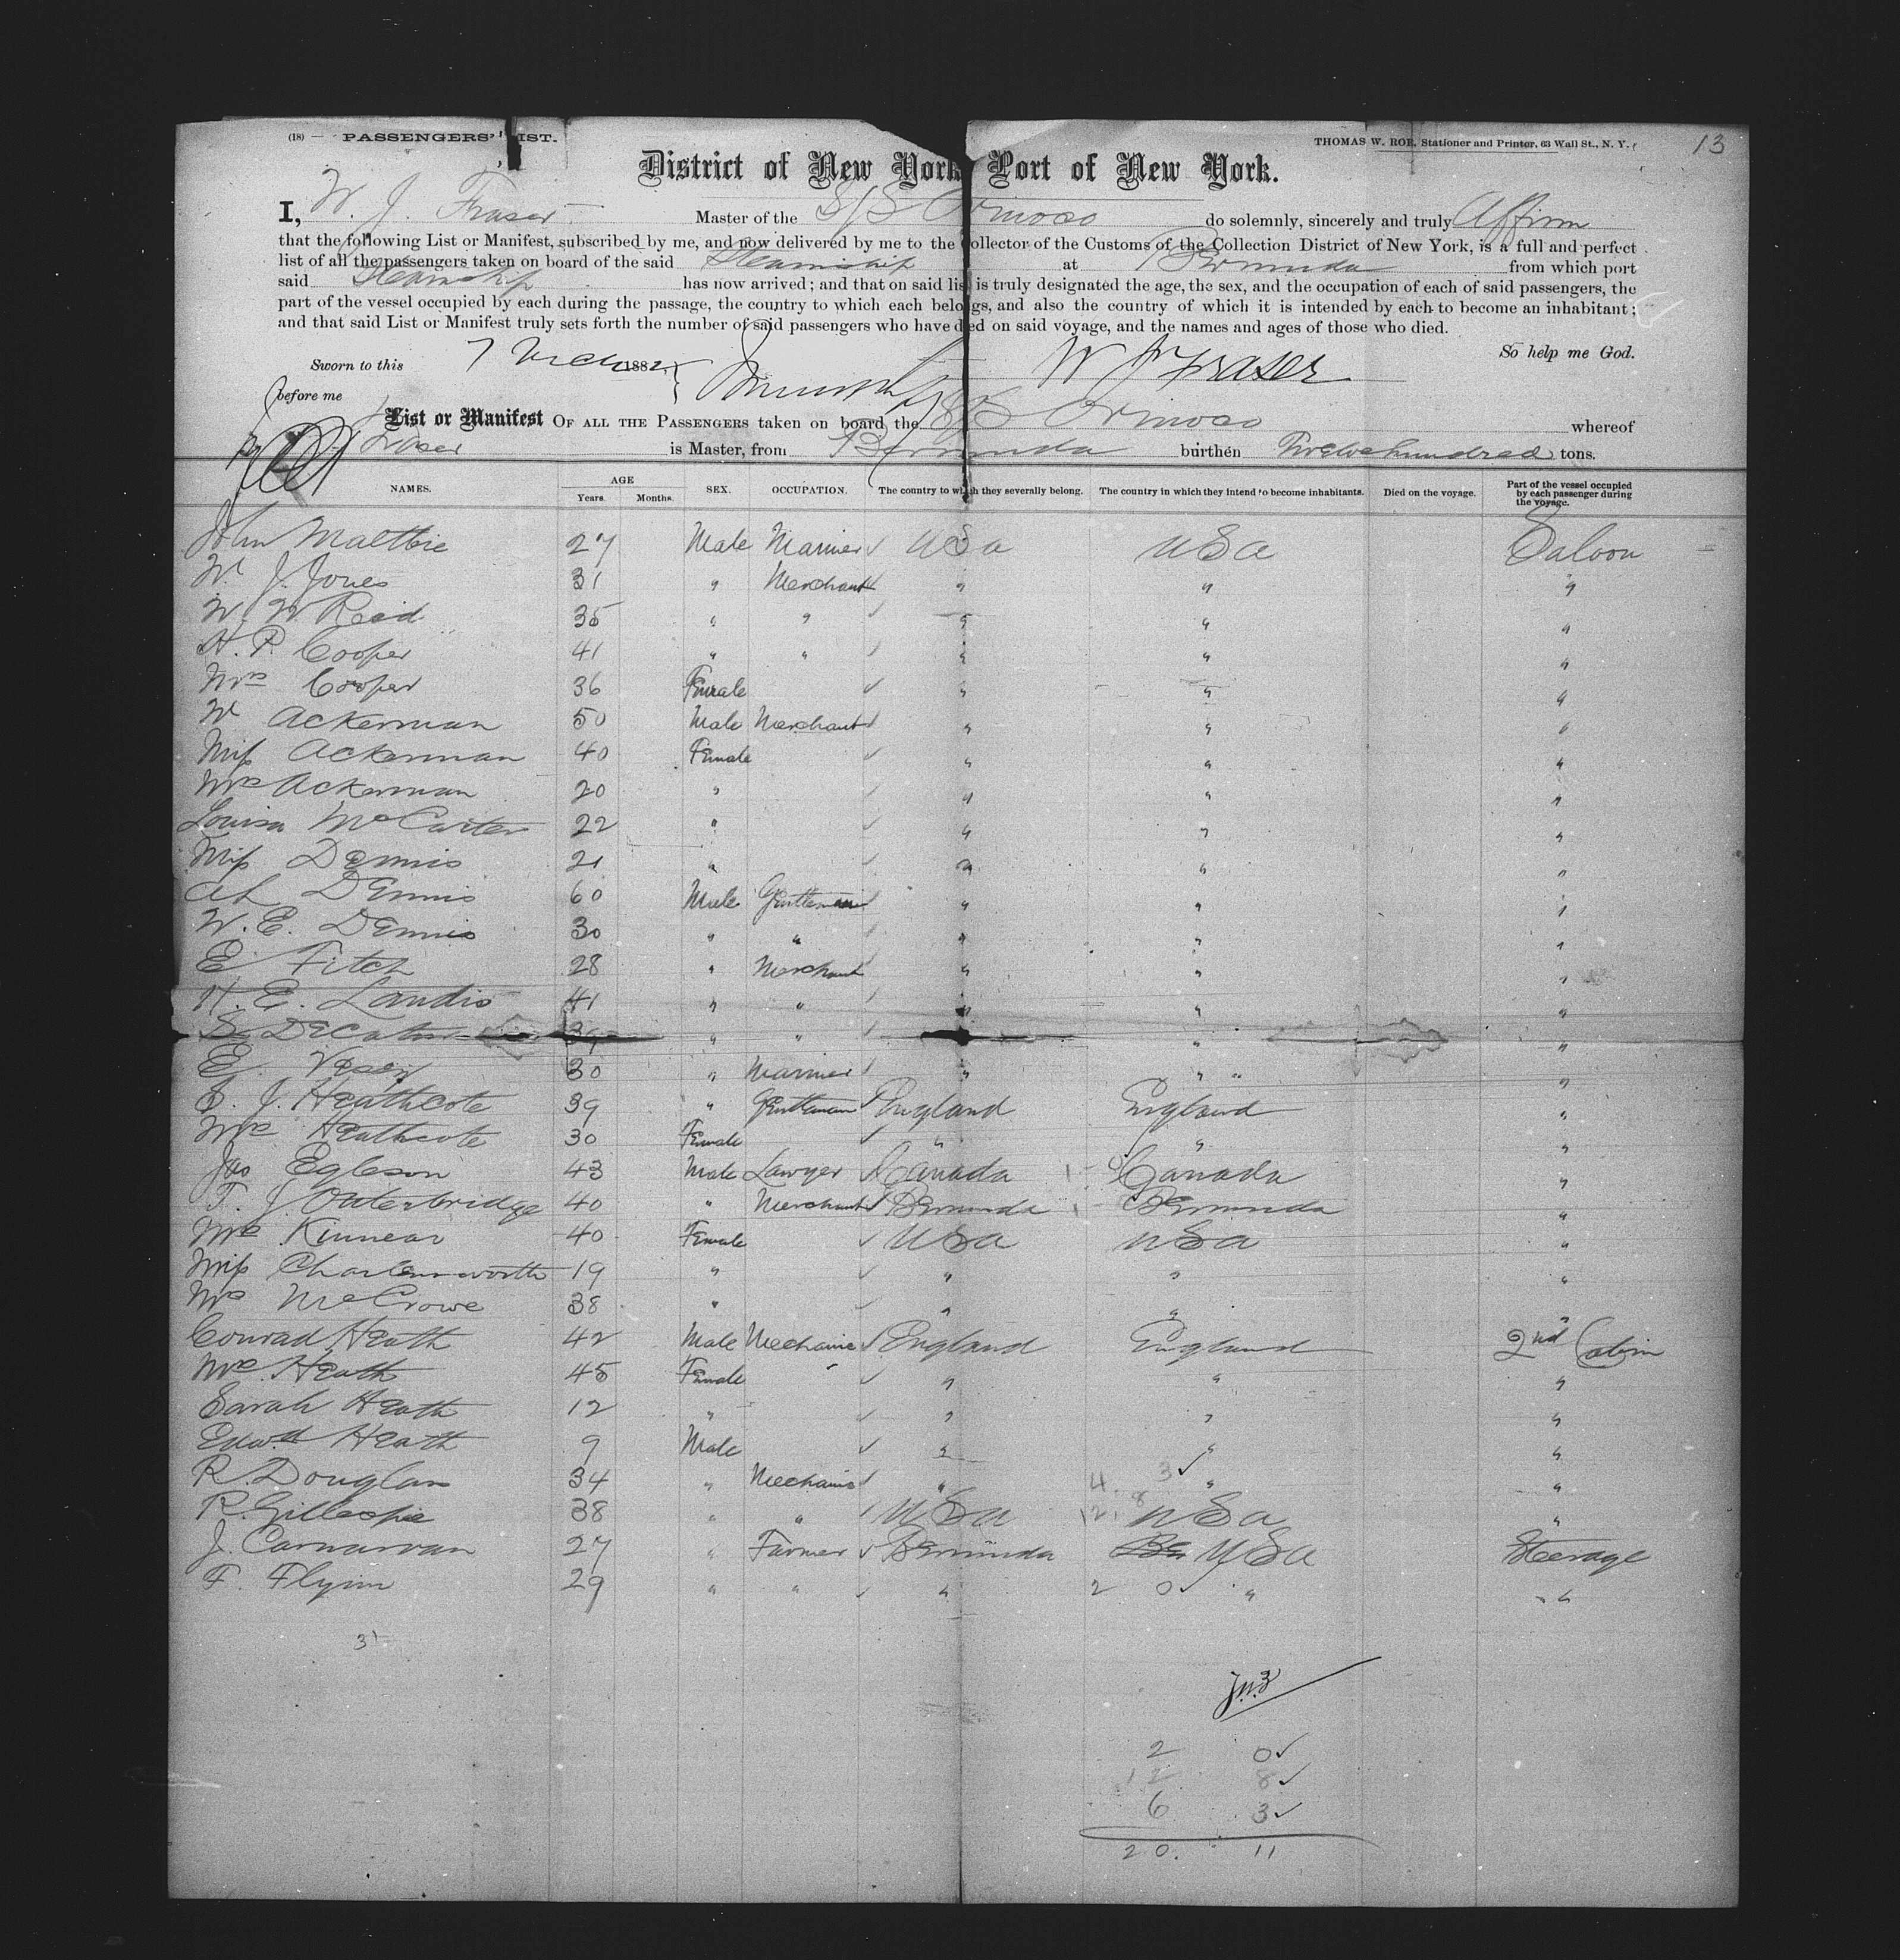 (18) — PASSENGERS' LIST. THOMAS W. ROE, Stationer and Printer, 63 Wall St., N. Y. 13
District of New York Port of New York.
I, W. J. Fraser Master of the S/S Orinoco do solemnly, sincerely and truly Affirm
that the following List or Manifest, subscribed by me, and now delivered by me to the Collector of the Customs of the Collection District of New York, is a full and perfect
list of all the passengers taken on board of the said Steamship at Bermuda from which port
said Steamship has now arrived; and that on said list is truly designated the age, the sex, and the occupation of each of said passengers, the
part of the vessel occupied by each during the passage, the country to which each belongs, and also the country of which it is intended by each to become an inhabitant;
and that said List or Manifest truly sets forth the number of said passengers who have died on said voyage, and the names and ages of those who died.
So help me God.
Sworn to this 7 1882 W J Fraser
before me
List or Manifest OF ALL THE PASSENGERS taken on board the S/S Orinoco whereof
Fraser is Master, from Bermuda burthen Twelve hundred tons.
NAMES. AGE Years. Months. SEX. OCCUPATION. The country to which they severally belong. The country in which they intend to become inhabitants. Died on the voyage. Part of the vessel occupied by each passenger during the voyage.
John Maltbie 27 Male Mariner USa USa Saloon
W. J. Jones 31 " Merchant " " "
W. W. Reid 35 " " " " "
H. P. Cooper 41 " " " " "
Mrs Cooper 36 Female " " "
W Ackerman 50 Male Merchant " " "
Miss Ackerman 40 Female " " "
Mrs Ackerman 20 " " " "
Louisa McCarter 22 " " " "
Miss Dennis 21 " " " "
Dennis 60 Male Gentleman " " "
W. E. Dennis 30 " " " " "
E Fitch 28 " Merchant " " "
H. E. Landis 41 " " " " "
S Decatur 39 " " " "
E. 30 " Mariner " " " "
S. J. Heathcote 39 " Gentleman England England "
Mrs Heathcote 30 Female " " "
Jas Egleson 43 Male Lawyer Canada Canada "
T. J. Outerbridge 40 " Merchant Bermuda Bermuda "
Mrs Kinnear 40 Female USa USa "
Miss Charlesworth 19 " " " "
Mrs McCrowe 38 " " " "
Conrad Heath 42 Male Mechanic England England 2nd Cabin
Mrs. Heath 45 Female " " " "
Sarah Heath 12 " " " "
Edwd Heath 9 Male " " "
R. Douglass 34 " Mechanic " 4 3 " "
R. Gillespie 38 " " USa 12 8 USa "
J. Carnarvan 27 " Farmer Bermuda Be USa Steerage
F. Flynn 29 " " " 2 0 " "
31
2 0
12 8
6 3
20. 11